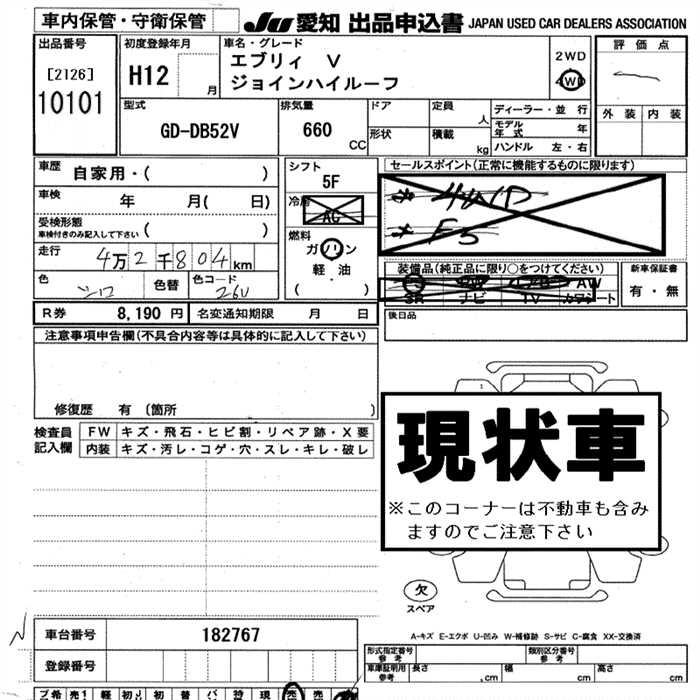 車内保管・守衛保管
JU 愛知 出品申込書 JAPAN USED CAR DEALERS ASSOCIATION
出品番号
[2126]
10101
初度登録年月
H12 月
車名・グレード
エブリィ V
ジョインハイルーフ
2WD
4WD
評価点
外装 内装
型式
GD-DB52V
排気量
660 CC
ドア
形状
定員 人
積載 kg
ディーラー・並行
モデル年式 年
ハンドル 左・右
車歴 自家用・( )
車検 年 月( 日)
受検形態
車検付きのみ記入して下さい ( )
走行 4万2千804km
色 シロ 色替 色コード 26U
シフト
5F
冷房
AC
燃料
ガソリン
軽油
( )
セールスポイント(正常に機能するものに限ります)
* 4WD
* F5
装備品(純正品に限り○をつけてください)
SR ナビ TV カワシート
AW
新車保証書
有・無
R券 8,190円 名変通知期限 月 日
後日品
注意事項申告欄(不具合内容等は具体的に記入して下さい)
修復歴 有 〔箇所 〕
検査員
記入欄
FW キズ・飛石・ヒビ割・リペア跡・X要
内装 キズ・汚レ・コゲ・穴・スレ・キレ・破レ
現状車
※このコーナーは不動車も含み
ますのでご注意下さい
欠
スペア
A-キズ E-エクボ U-凹み W-補修跡 S-サビ C-腐食 XX-交換済
車台番号 182767
登録番号
形式指定番号
参考
類別区分番号
参考
車庫証明用
参考
長さ cm 幅 cm 高さ cm